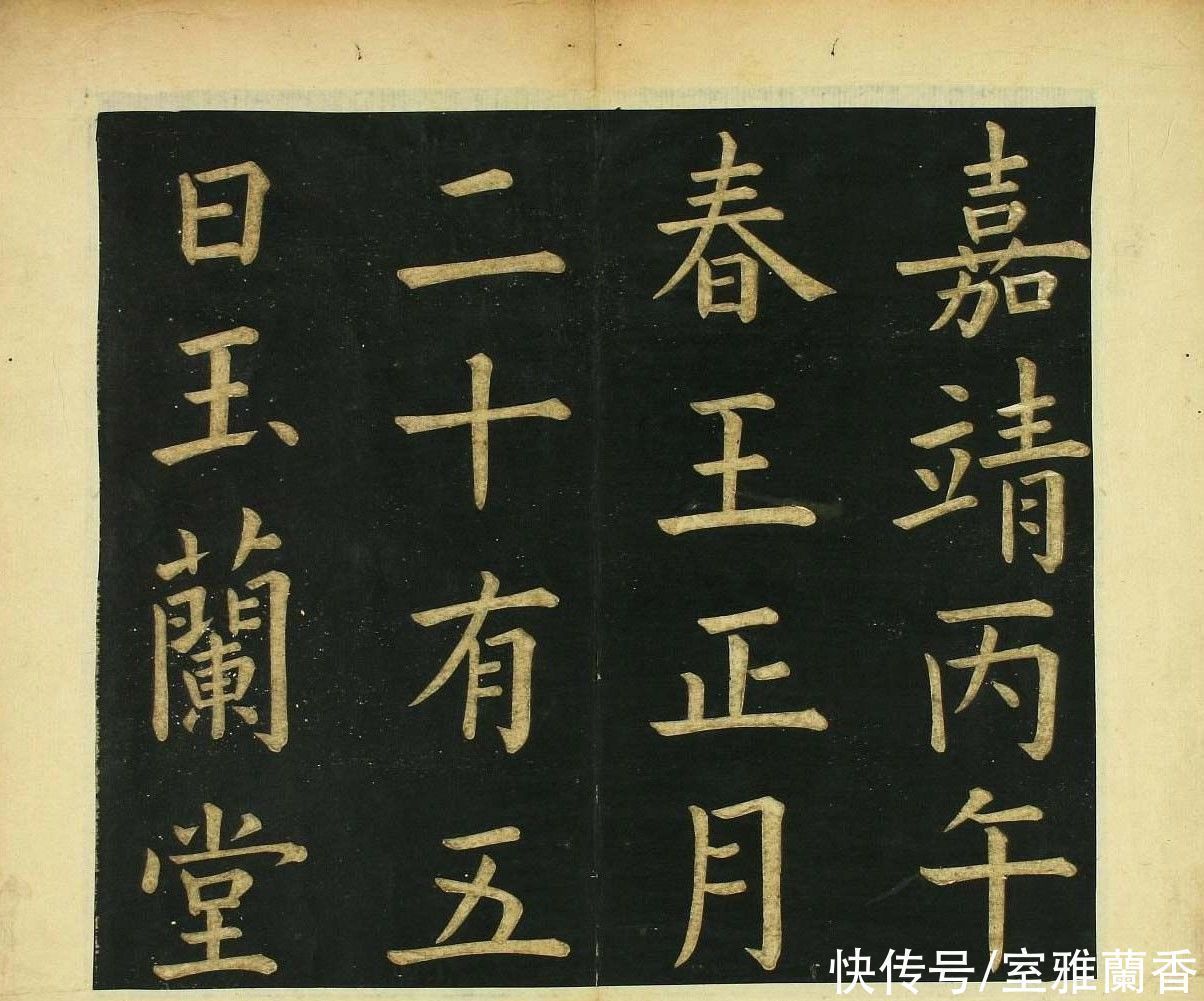 嘉靖丙午
春王正月
二十有五
日玉蘭堂
快传号/室雅蘭香